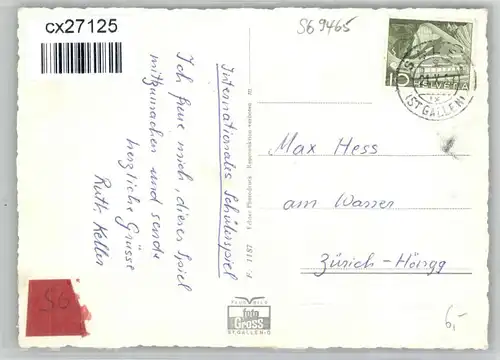 cx27125
SG 9465
Internationales Schülerspiel
Ich freue mich, dieses Spiel
mitzumachen und sende
herzliche Grüsse
Ruth Keller
F. 1187 Echte Photodruck Reproduktion verboten
10
HELVETIA
(ST GALLEN)
Max Hess
am Wasser
Zürich-Höngg
SG
FLUGBILD
foto
Gross
ST. GALLEN-O
6,-